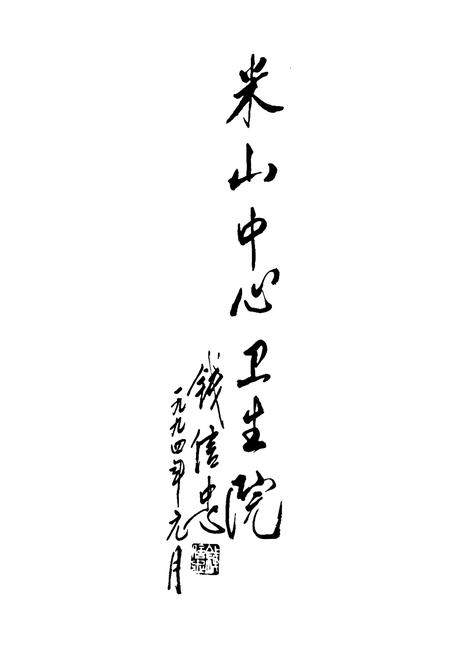 米山中心卫生院
钱信忠
一九九四年元月